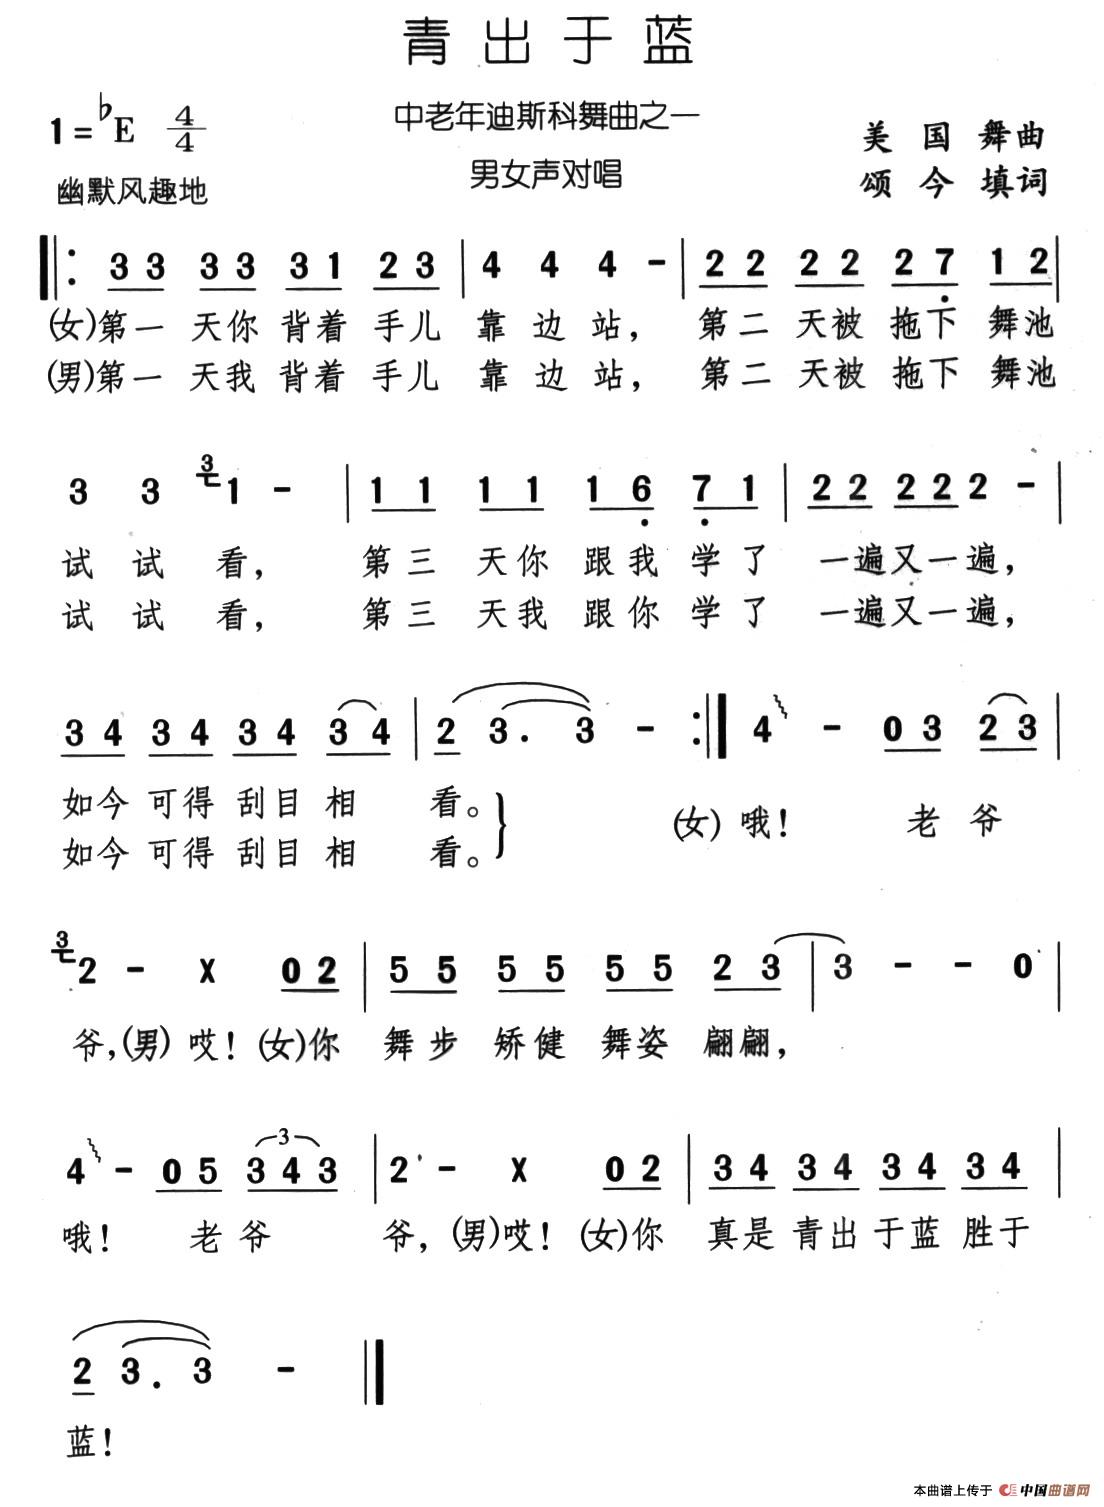 青出于蓝
中老年迪斯科舞曲之一
男女声对唱
1=♭E 4/4
幽默风趣地
美国舞曲
颂今填词
3 3 3 3 3 1 2 3 | 4 4 4 - | 2 2 2 2 2 7 1 2 |
(女)第一 天你 背着 手儿 靠边站, 第二 天被 拖下 舞池
(男)第一 天我 背着 手儿 靠边站, 第二 天被 拖下 舞池
3 3 3 1 - | 1 1 1 1 1 6 7 1 | 2 2 2 2 2 2 - |
试 试 看, 第三 天你 跟我 学了 一遍又一遍,
试 试 看, 第三 天我 跟你 学了 一遍又一遍,
3 4 3 4 3 4 3 4 | 2 3. 3 - :| 4 - 0 3 2 3 |
如今 可得 刮目 相 看。 (女)哦! 老 爷
如今 可得 刮目 相 看。
3 2 - X 0 2 | 5 5 5 5 5 5 2 3 | 3 - - 0 |
爷,(男)哎!(女)你 舞步 矫健 舞姿 翩翩,
4 - 0 5 3 4 3 3 | 2 - X 0 2 | 3 4 3 4 3 4 3 4 |
哦! 老 爷 爷,(男)哎!(女)你 真是 青出 于蓝 胜于
2 3. 3 -
蓝!
本曲谱上传于 中国曲谱网